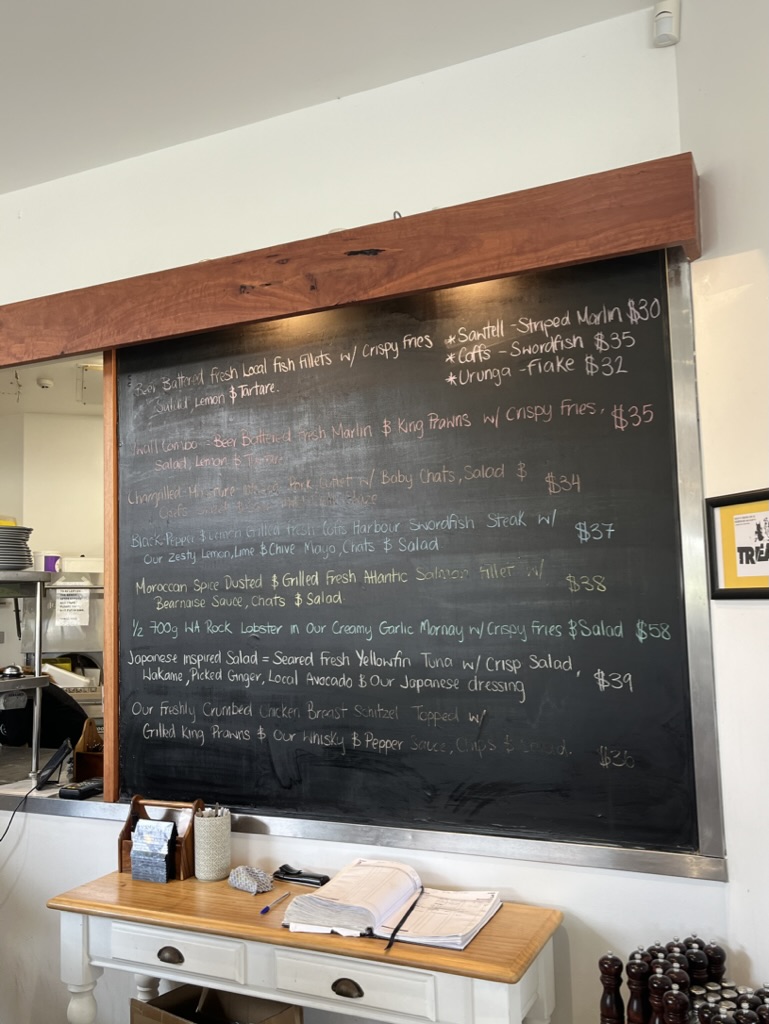 Beer Battered Fresh Local Fish Fillets w/ Crispy Fries
Salad, Lemon & Tartare.
*Sawtell - Striped Marlin $30
*Coffs - Swordfish $35
*Urunga - Flake $32
Combo = Beer Battered Fresh Marlin & King Prawns w/ Crispy Fries, $35
Salad, Lemon &
w/ Baby Chats, Salad & $34
Black Pepper & Lemon Grilled Fresh Coffs Harbour Swordfish Steak w/ $37
Our Zesty Lemon, Lime & Chive Mayo, Chats & Salad
Moroccan Spice Dusted & Grilled Fresh Atlantic Salmon Fillet w/ $38
Bearnaise Sauce, Chats & Salad
1/2 700g WA Rock Lobster in Our Creamy Garlic Mornay w/ Crispy Fries & Salad $58
Japanese Inspired Salad = Seared Fresh Yellowfin Tuna w/ Crisp Salad,
Wakame, Picked Ginger, Local Avocado & Our Japanese dressing $39
Our Freshly Crumbed Chicken Breast Schitzel Topped w/
Grilled King Prawns & Our Whisky & Pepper Sauce, Chips & Salad. $36